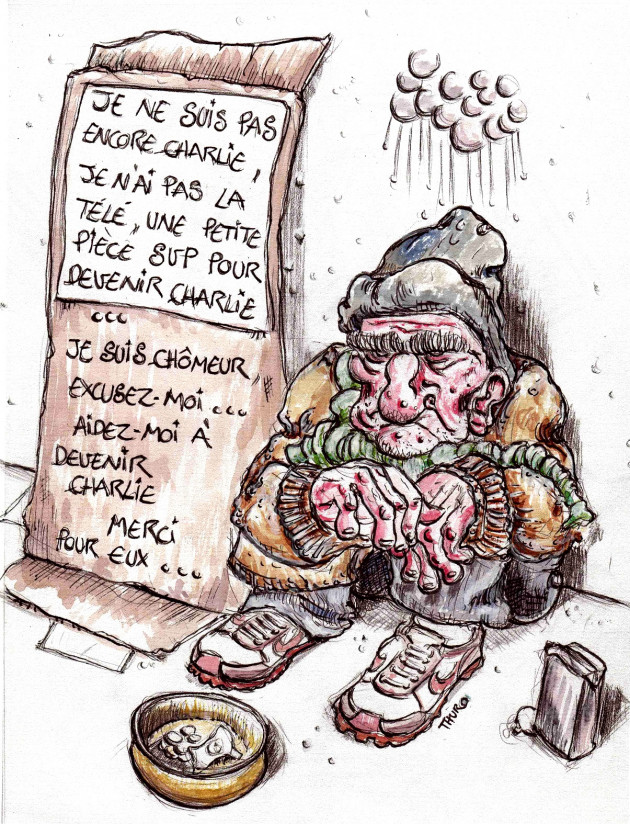 JE NE SUIS PAS
ENCORE CHARLIE,
JE N'AI PAS LA
TÉLÉ, UNE PETITE
PIÈCE SVP POUR
DEVENIR CHARLIE
...
JE SUIS CHÔMEUR
EXCUSEZ-MOI ...
AIDEZ-MOI À
DEVENIR
CHARLIE
MERCI
POUR EUX ...
THURO